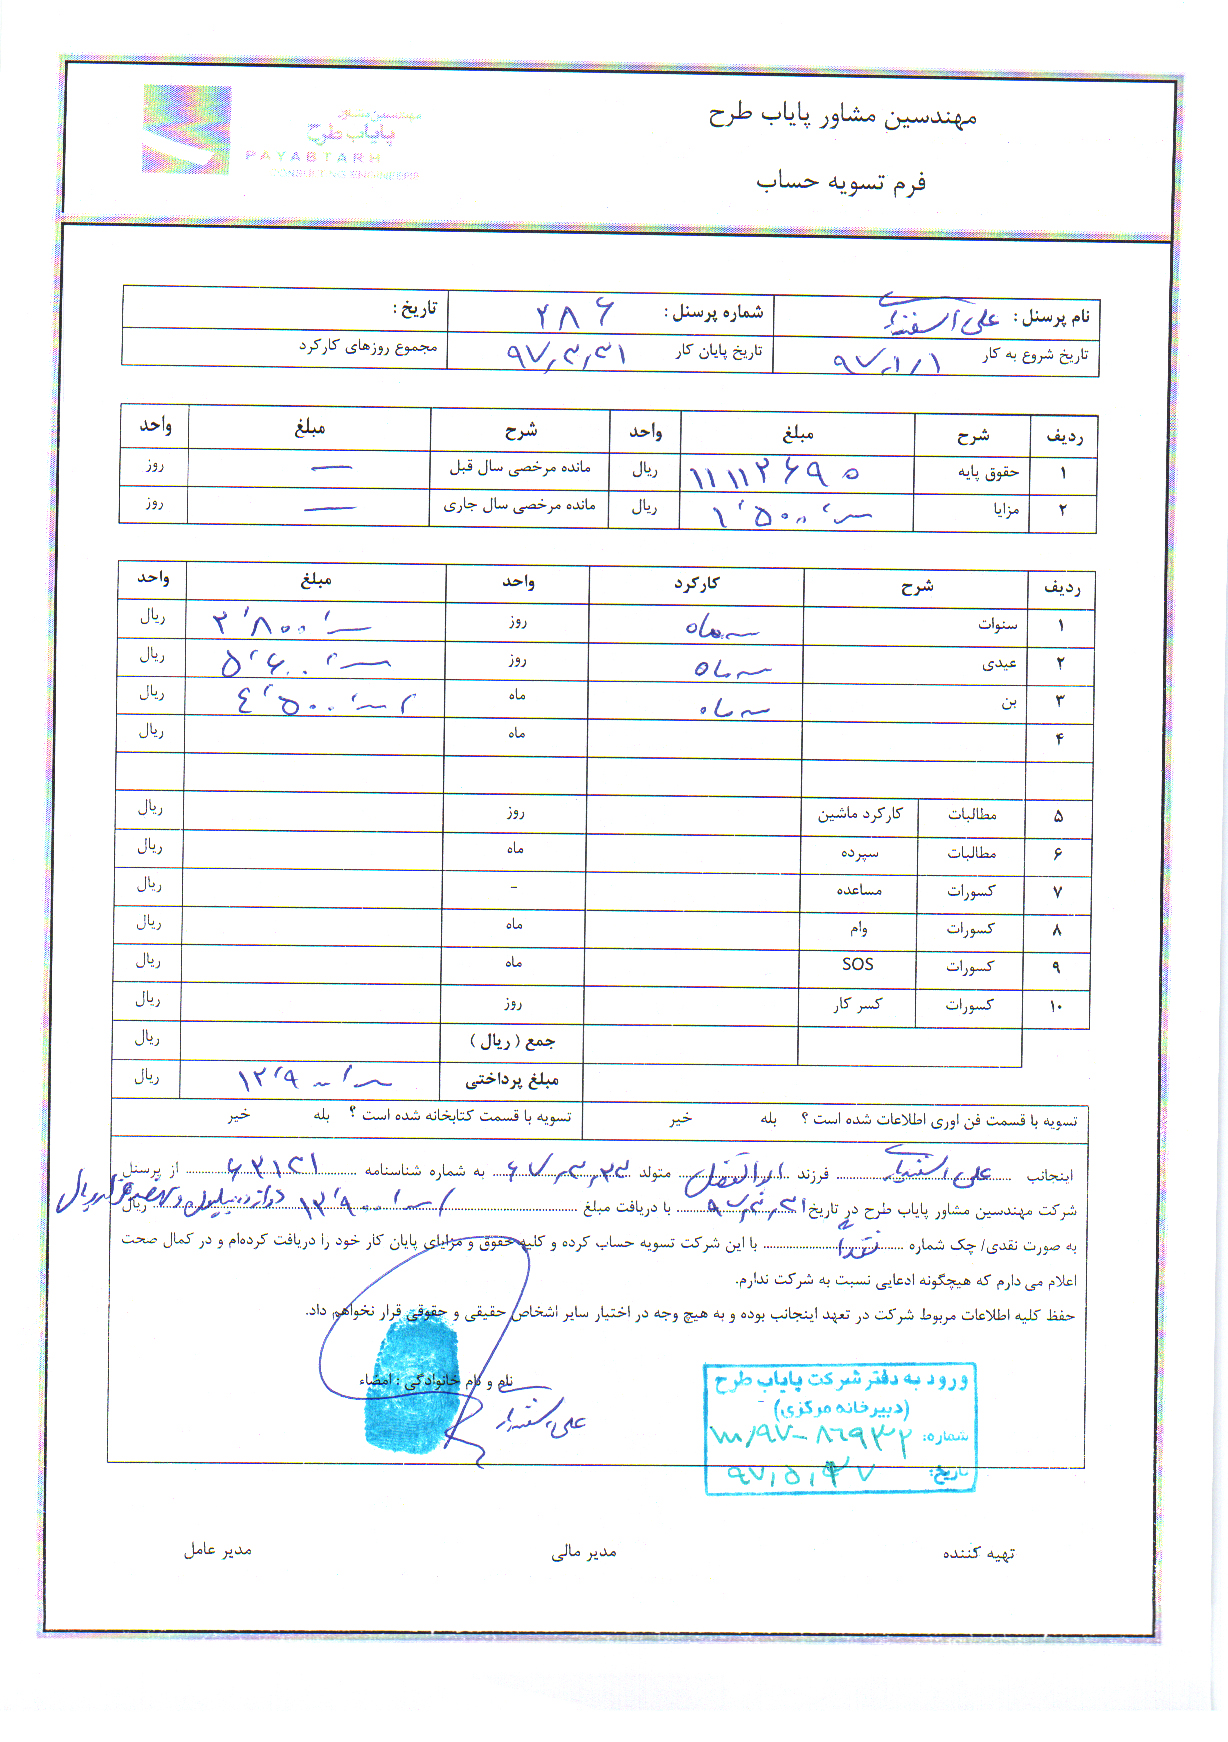 مهندسین مشاور پایاب طرح
مهندسین مشاور
پایاب طرح
PAYABTARH
CONSULTING ENGINEERS
فرم تسویه حساب
نام پرسنل : علی اسفندیار شماره پرسنل : ۲۸۶ تاریخ :
تاریخ شروع به کار ۹۷/۱/۱ تاریخ پایان کار ۹۷/۳/۳۱ مجموع روزهای کارکرد
ردیف شرح مبلغ واحد شرح مبلغ واحد
۱ حقوق پایه ۱۱۱۱۲۶۹۰ ریال مانده مرخصی سال قبل — روز
۲ مزایا ۱٬۵۰۰٬۰۰۰ ریال مانده مرخصی سال جاری — روز
ردیف شرح کارکرد واحد مبلغ واحد
۱ سنوات سه ماه روز ۲٬۸۰۰٬۰۰۰ ریال
۲ عیدی سه ماه روز ۵٬۶۰۰٬۰۰۰ ریال
۳ بن سه ماه ماه ۴٬۵۰۰٬۰۰۰ ریال
۴ ماه ریال
۵ مطالبات کارکرد ماشین روز ریال
۶ مطالبات سپرده ماه ریال
۷ کسورات مساعده - ریال
۸ کسورات وام ماه ریال
۹ کسورات SOS ماه ریال
۱۰ کسورات کسر کار روز ریال
جمع ( ریال ) ریال
مبلغ پرداختی ۱۲٬۹۰۰٬۰۰۰ ریال
تسویه با قسمت فن اوری اطلاعات شده است ؟ بله خیر تسویه با قسمت کتابخانه شده است ؟ بله خیر
اینجانب علی اسفندیار فرزند ابوالفضل متولد ۶۷/۳/۲۳ به شماره شناسنامه ۶۳۱۳۱ از پرسنل
شرکت مهندسین مشاور پایاب طرح در تاریخ ۹۷/۳/۳۱ با دریافت مبلغ ۱۲٬۹۰۰٬۰۰۰ دوازده میلیون و نهصد هزار ریال ریال
به صورت نقدی/ چک شماره نقداً با این شرکت تسویه حساب کرده و کلیه حقوق و مزایای پایان کار خود را دریافت کرده‌ام و در کمال صحت
اعلام می دارم که هیچگونه ادعایی نسبت به شرکت ندارم.
حفظ کلیه اطلاعات مربوط شرکت در تعهد اینجانب بوده و به هیچ وجه در اختیار سایر اشخاص حقیقی و حقوقی قرار نخواهم داد.
نام و نام خانوادگی : امضاء
علی اسفندیار
ورود به دفتر شرکت پایاب طرح
(دبیرخانه مرکزی)
شماره: ۱۰۰/۹۷-۸۶۹۳۲
تاریخ:
تهیه کننده مدیر مالی مدیر عامل